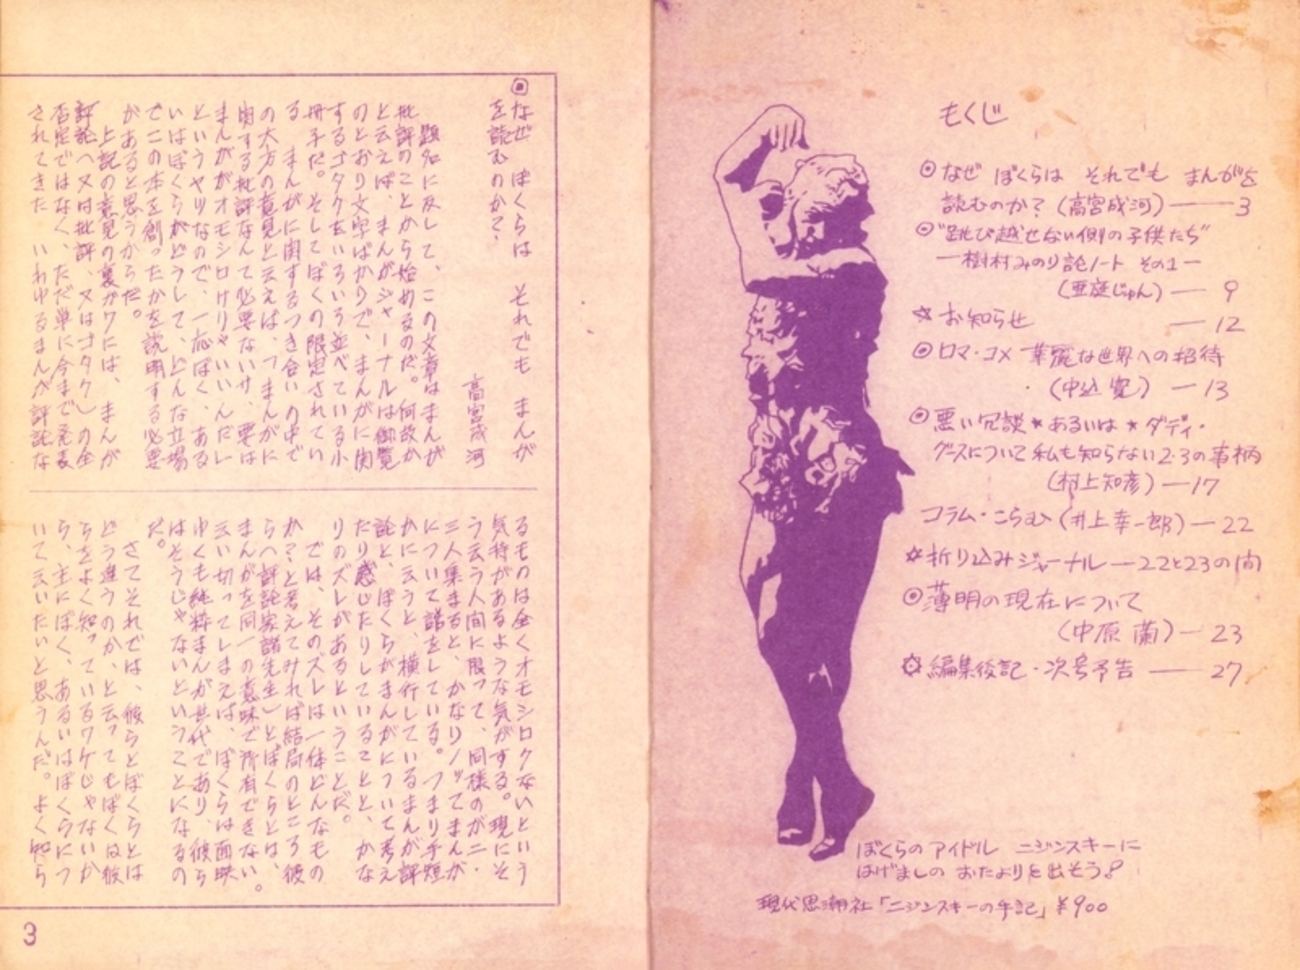 もくじ
◎なぜ ぼくらは それでも まんがを
読むのか?(高宮成河)——3
◎"跳び越せない側の子供たち"
—樹村みのり論ノート その1—
(亜庭じゅん)—9
☆お知らせ —12
◎ロマ・コメ 華麗な世界への招待
・(中込 寛)—13
◎悪い冗談★あるいは★ダディ・
グースについて私も知らない2・3の事柄
(村上知彦)—17
コラム・こらむ(井上幸一郎)—22
☆折り込みジャーナル—22と23の間
◎薄明の現在について
(中原 蘭)—23
☆編集後記・次号予告——27
ぼくらのアイドル ニジンスキーに
はげましの おたよりを出そう!
現代思潮社「ニジンスキーの手記」¥900
◎なぜ ぼくらは それでも まんが
を読むのか?
高宮成河
題名に反して、この文章はまんが
批評のことから始めるのだ。何故か
と云えば、まんがジャーナルは御覧
のとおり文字ばかりで、まんがに関
するゴタクをいろいろ並べている小
冊子だ。そしてぼくの限定されてい
る まんがに関するつき合いの中で
の大方の意見と云えば、「まんがに
関する批評なんて必要ないサ、要は
まんががオモシロけりゃいいんだ」
というヤツなので、一応ぼく、ある
いはぼくらがどうして、どんな立場
でこの本を創ったかを説明する必要
があると思うからだ。
上記の意見の裏がワには、まんが
評論(又は批評、又はゴタク)の全
否定ではなく、ただ単に今まで発表
されてきた いわゆるまんが評論な
るものは全くオモシロクないという
気持があるような気がする。現にそ
う云う人間に限って、同様のが二・
三人集まると、かなりノッてまんが
について話をしている。つまり手短
かに云うと、横行しているまんが評
論と、ぼくらがまんがについて考え
たり感じたりしていることと、かな
りのズレがあるということだ。
では、そのズレは一体どんなもの
か?と考えてみれば結局のところ彼
ら(評論家諸先生)とぼくらとは、
まんがを同一の意味で所有できない。
云い切ってしまえば、ぼくらは面映
ゆくも純粋まんが世代であり 彼ら
はそうじゃないということになるの
だ。
さてそれでは、彼らとぼくらとは
どう違うのか、と云ってもぼくは彼
らをよく知っているワケじゃないか
ら、主にぼく、あるいはぼくらにつ
いて云いたいと思うんだ。よく知ら
3